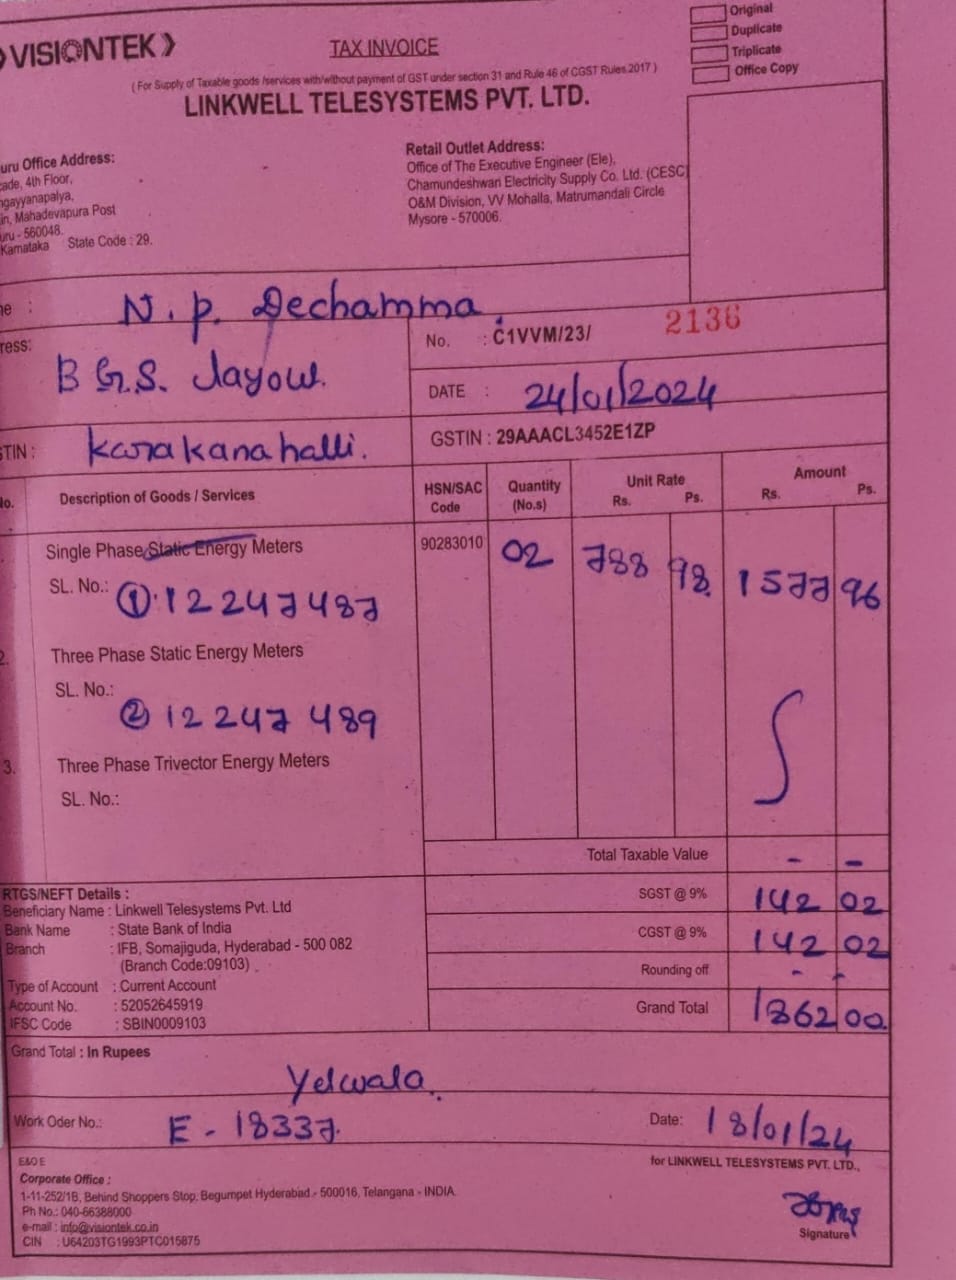 VISIONTEK
TAX INVOICE
Original
Duplicate
Triplicate
Office Copy
( For Supply of Taxable goods /services with/without payment of GST under section 31 and Rule 46 of CGST Rules.2017 )
LINKWELL TELESYSTEMS PVT. LTD.
uru Office Address:
ade, 4th Floor,
ngayyanapalya,
in, Mahadevapura Post
uru - 560048.
Karnataka State Code : 29.
Retail Outlet Address:
Office of The Executive Engineer (Ele),
Chamundeshwari Electricity Supply Co. Ltd. (CESC)
O&M Division, VV Mohalla, Matrumandali Circle
Mysore - 570006.
me : N. P. Dechamma
ress: B G.S. Layout.
No. : C1VVM/23/ 2136
DATE : 24/01/2024
STIN : Karakanahalli.
GSTIN : 29AAACL3452E1ZP
No. Description of Goods / Services HSN/SAC Code Quantity (No.s) Unit Rate Rs. Ps. Amount Rs. Ps.
Single Phase Static Energy Meters 90283010 02 788 98 1577 96
SL. No.: ① 12247487
2. Three Phase Static Energy Meters
SL. No.:
② 12247489
3. Three Phase Trivector Energy Meters
SL. No.:
Total Taxable Value - -
SGST @ 9% 142 02
CGST @ 9% 142 02
Rounding off - -
Grand Total 1862 00
RTGS/NEFT Details :
Beneficiary Name : Linkwell Telesystems Pvt. Ltd
Bank Name : State Bank of India
Branch : IFB, Somajiguda, Hyderabad - 500 082
(Branch Code:09103)
Type of Account : Current Account
Account No. : 52052645919
IFSC Code : SBIN0009103
Grand Total : In Rupees
Yelwala.
Work Oder No.: E - 18337. Date: 18/01/24
E&O E
Corporate Office :
1-11-252/1B, Behind Shoppers Stop, Begumpet Hyderabad - 500016, Telangana - INDIA.
Ph No.: 040-66388000
e-mail : info@visiontek.co.in
CIN : U64203TG1993PTC015875
for LINKWELL TELESYSTEMS PVT. LTD.,
Signature